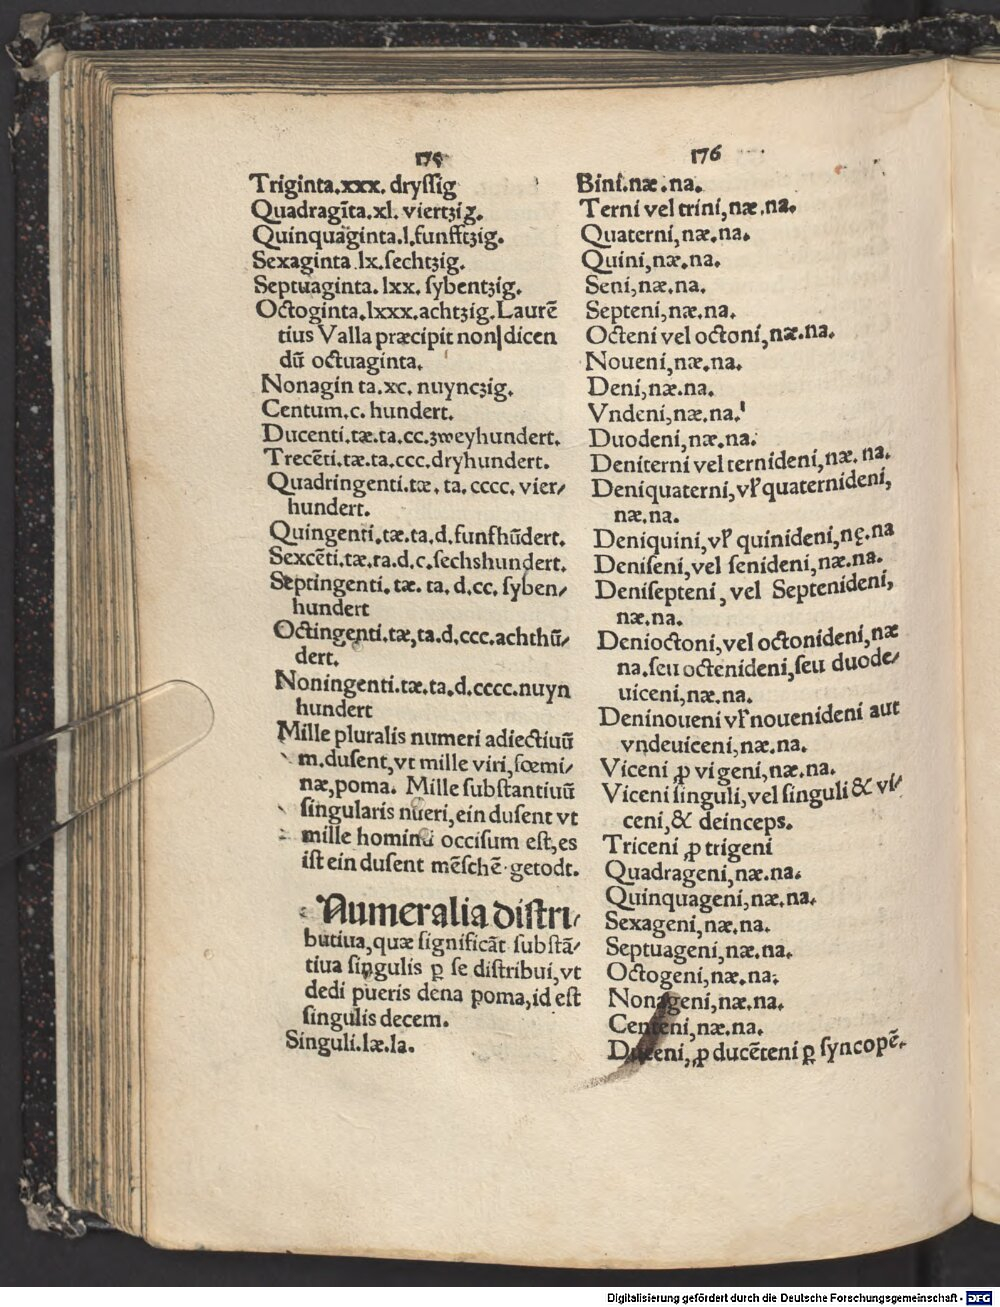 175
Triginta.xxx. dryſſig
Quadragīta.xl. viertzig.
Quinquaginta.l.funfftzig.
Sexaginta lx.ſechtzig.
Septuaginta. lxx. ſybentzig.
Octoginta.lxxx.achtzig.Laurē
tius Valla præcipit non|dicen
dū octuaginta.
Nonagin ta.xc. nuynczig.
Centum.c. hundert.
Ducenti.tæ.ta.cc.zweyhundert.
Trecēti.tæ.ta.ccc.dryhundert.
Quadringenti.tæ. ta. cccc. vier/
hundert.
Quingenti.tæ.ta.d.funfhūdert.
Sexcēti.tæ.ta.d.c.ſechshundert.
Septingenti. tæ. ta. d.cc. ſyben/
hundert
Octingenti.tæ,ta.d.ccc.achthū/
dert.
Noningenti.tæ.ta.d.cccc.nuyn
hundert
Mille pluralis numeri adiectiuū
m.duſent,vt mille viri,fœmi/
næ,poma. Mille ſubſtantiuū
ſingularis nūeri,ein duſent vt
mille hominū occiſum eſt,es
iſt ein duſent mēſchē getodt.
Numeralia diſtri/
butiua,quæ ſignificāt ſubſtā/
tiua ſingulis ꝑ ſe diſtribui,vt
dedi pueris dena poma,id eſt
ſingulis decem.
Singuli.læ.la.
176
Bini.næ.na.
Terni vel trini,næ.na.
Quaterni,næ.na.
Quini,næ.na.
Seni,næ.na.
Septeni,næ.na.
Octeni vel octoni,næ.na.
Noueni,næ.na.
Deni,næ.na.
Vndeni,næ.na.
Duodeni,næ.na.
Deniterni vel ternideni,næ. na.
Deniquaterni,vľ quaternideni,
næ.na.
Deniquini,vľ quinideni,nę.na
Deniſeni,vel ſenideni,næ.na.
Deniſepteni, vel Septenideni,
næ.na.
Denioctoni,vel octonideni,næ
na.ſeu octenideni,ſeu duode/
uiceni,næ.na.
Deninoueni vľ nouenideni aut
vndeuiceni,næ.na.
Viceni ꝓ vigeni,næ.na.
Viceni ſinguli,vel ſinguli & vi/
ceni,& deinceps.
Triceni ꝓ trigeni
Quadrageni,næ.na.
Quinquageni,næ.na.
Sexageni,næ.na.
Septuageni,næ.na.
Octogeni,næ.na.
Nonageni,næ.na.
Centeni,næ.na.
Duceni, ꝓ ducēteni ꝑ ſyncopē.
Digitalisierung gefördert durch die Deutsche Forschungsgemeinschaft - DFG